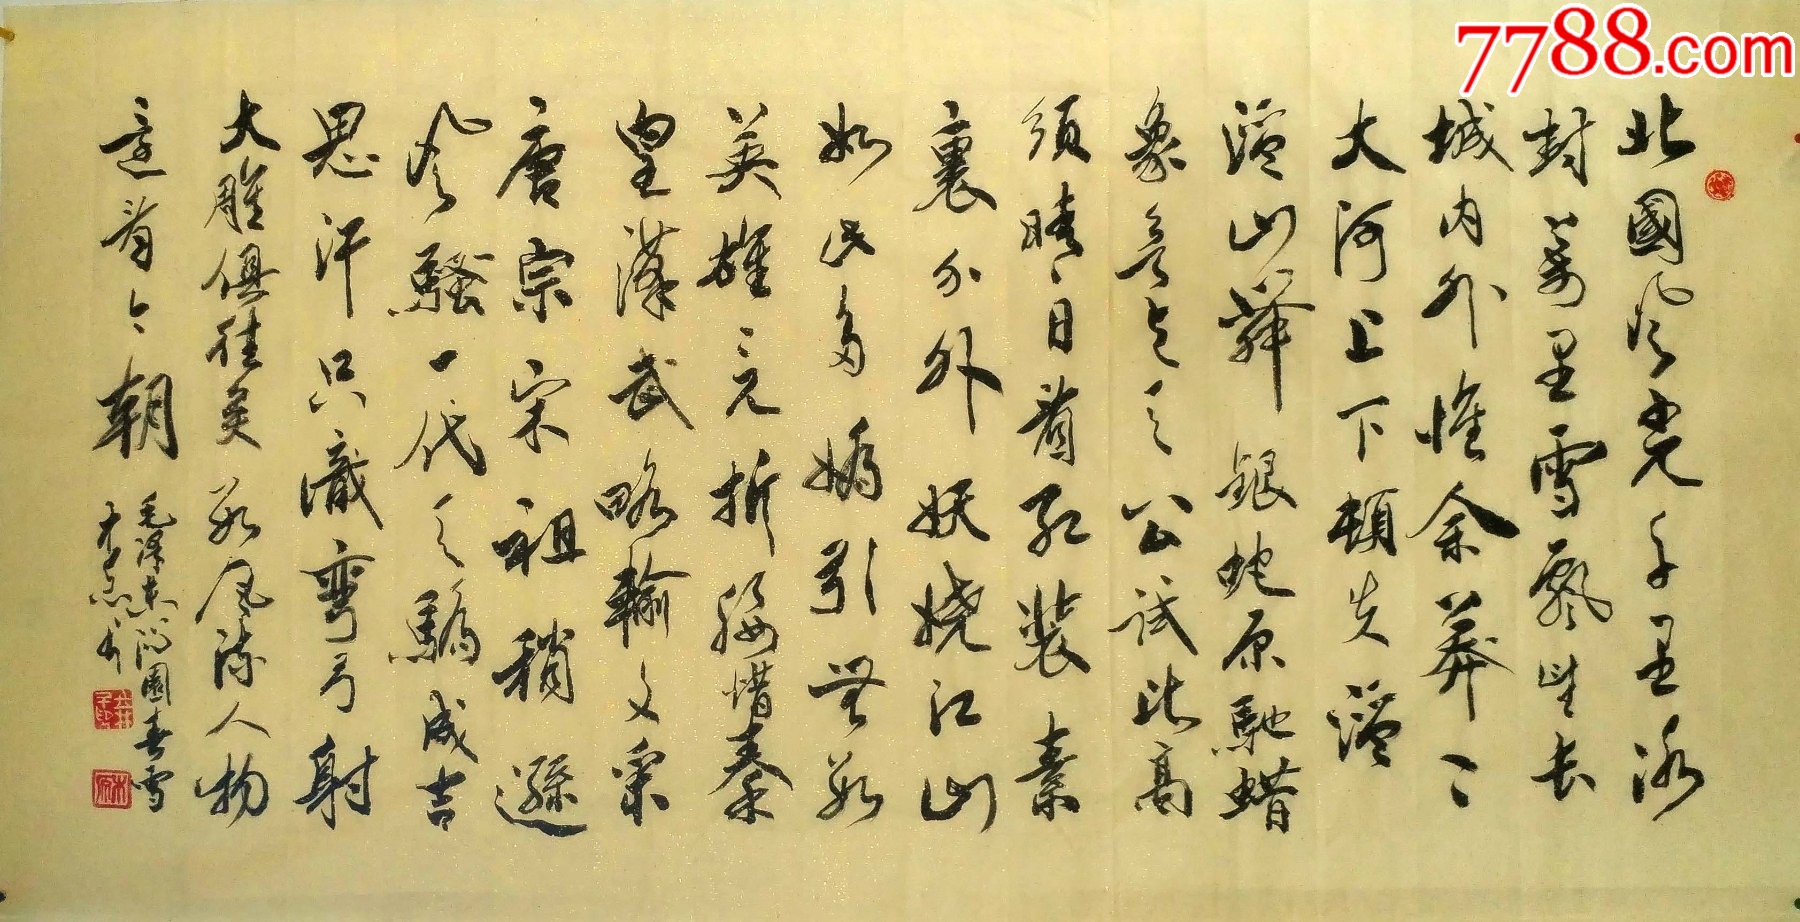 7788.com
北國風光千里冰
封萬里雪飄望長
城内外惟余莽〻
大河上下頓失滔
滔山舞銀蛇原馳蜡
象欲与天公試比高
須晴日看紅裝素
裹分外妖嬈江山
如此多嬌引無數
英雄竞折腰惜秦
皇漢武略輸文采
唐宗宋祖稍遜
風騷一代天驕成吉
思汗只識彎弓射
大雕俱往矣數風流人物
還看今朝
毛澤東沁園春雪